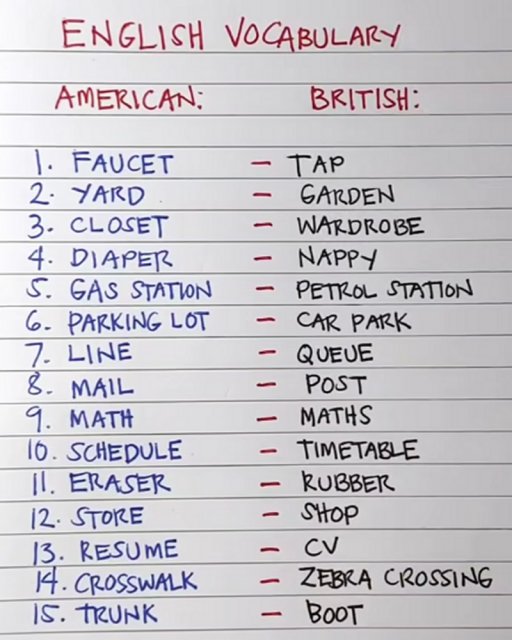 ENGLISH VOCABULARY
AMERICAN: BRITISH:
1. FAUCET - TAP
2. YARD - GARDEN
3. CLOSET - WARDROBE
4. DIAPER - NAPPY
5. GAS STATION - PETROL STATION
6. PARKING LOT - CAR PARK
7. LINE - QUEUE
8. MAIL - POST
9. MATH - MATHS
10. SCHEDULE - TIMETABLE
11. ERASER - RUBBER
12. STORE - SHOP
13. RESUME - CV
14. CROSSWALK - ZEBRA CROSSING
15. TRUNK - BOOT